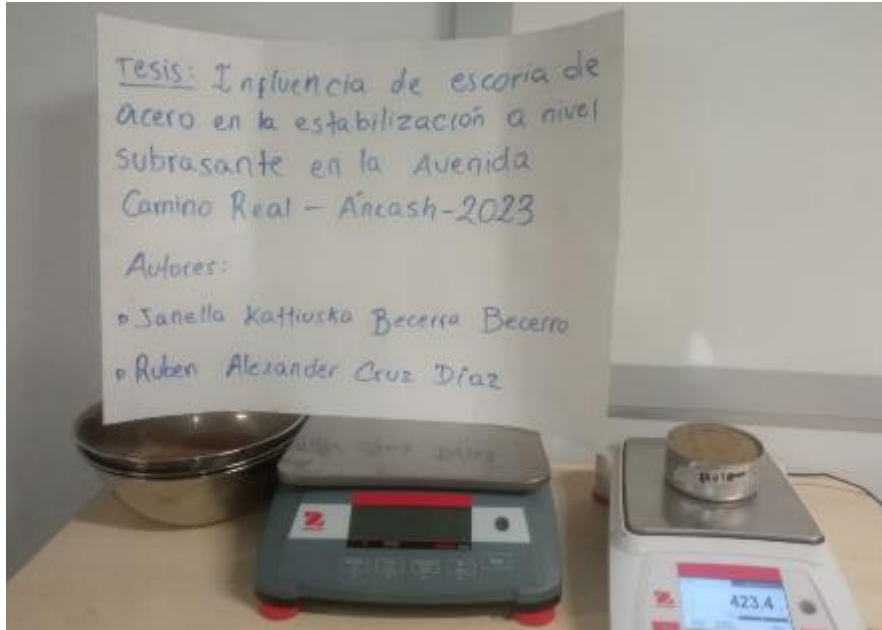 Tesis: Influencia de escoria de
acero en la estabilización a nivel
subrasante en la Avenida
Camino Real - Áncash-2023
Autores:
Janella Kattiuska Becerra Becerra
Ruben Alexander Cruz Díaz
423.4